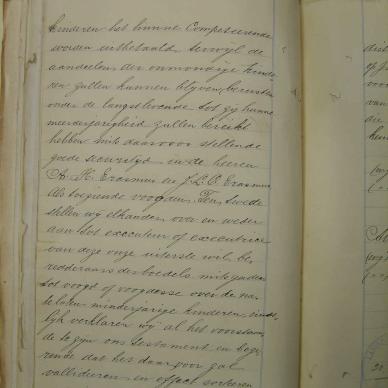 kinderen het hunne Competeerende
worden uitbetaald terwijl de
aandeelen der onmondige kinde
ren zullen kunnen blyven berusten
onder de langstlevende tot zy hunne
meerderjarigheid zullen bereikt
hebben mits daarvoor stellende
goede securiteit en de heeren
A. H. Erasmus en J. L. C. Erasmus
als toeziende voogden. Ten tweede
stellen wij elkanderen over en weder
aan tot executeur of executrice
van deze onze uiterste wil, be
redderaars des boedels mitsgaders
tot voogd of voogdesse over de na
telaten minderjarige kinderen, einde
lyk verklaren wy al het voorstaan
de te zyn ons testament en bege
rende dat het daar voor zal
valideren en effect sorteren